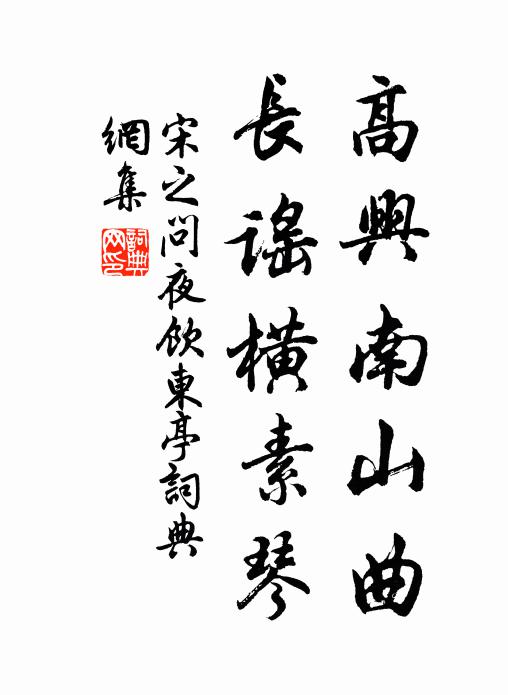 高興南山曲
長謠橫素琴
宋之問夜飲東亭詞典
網集
詞典網印